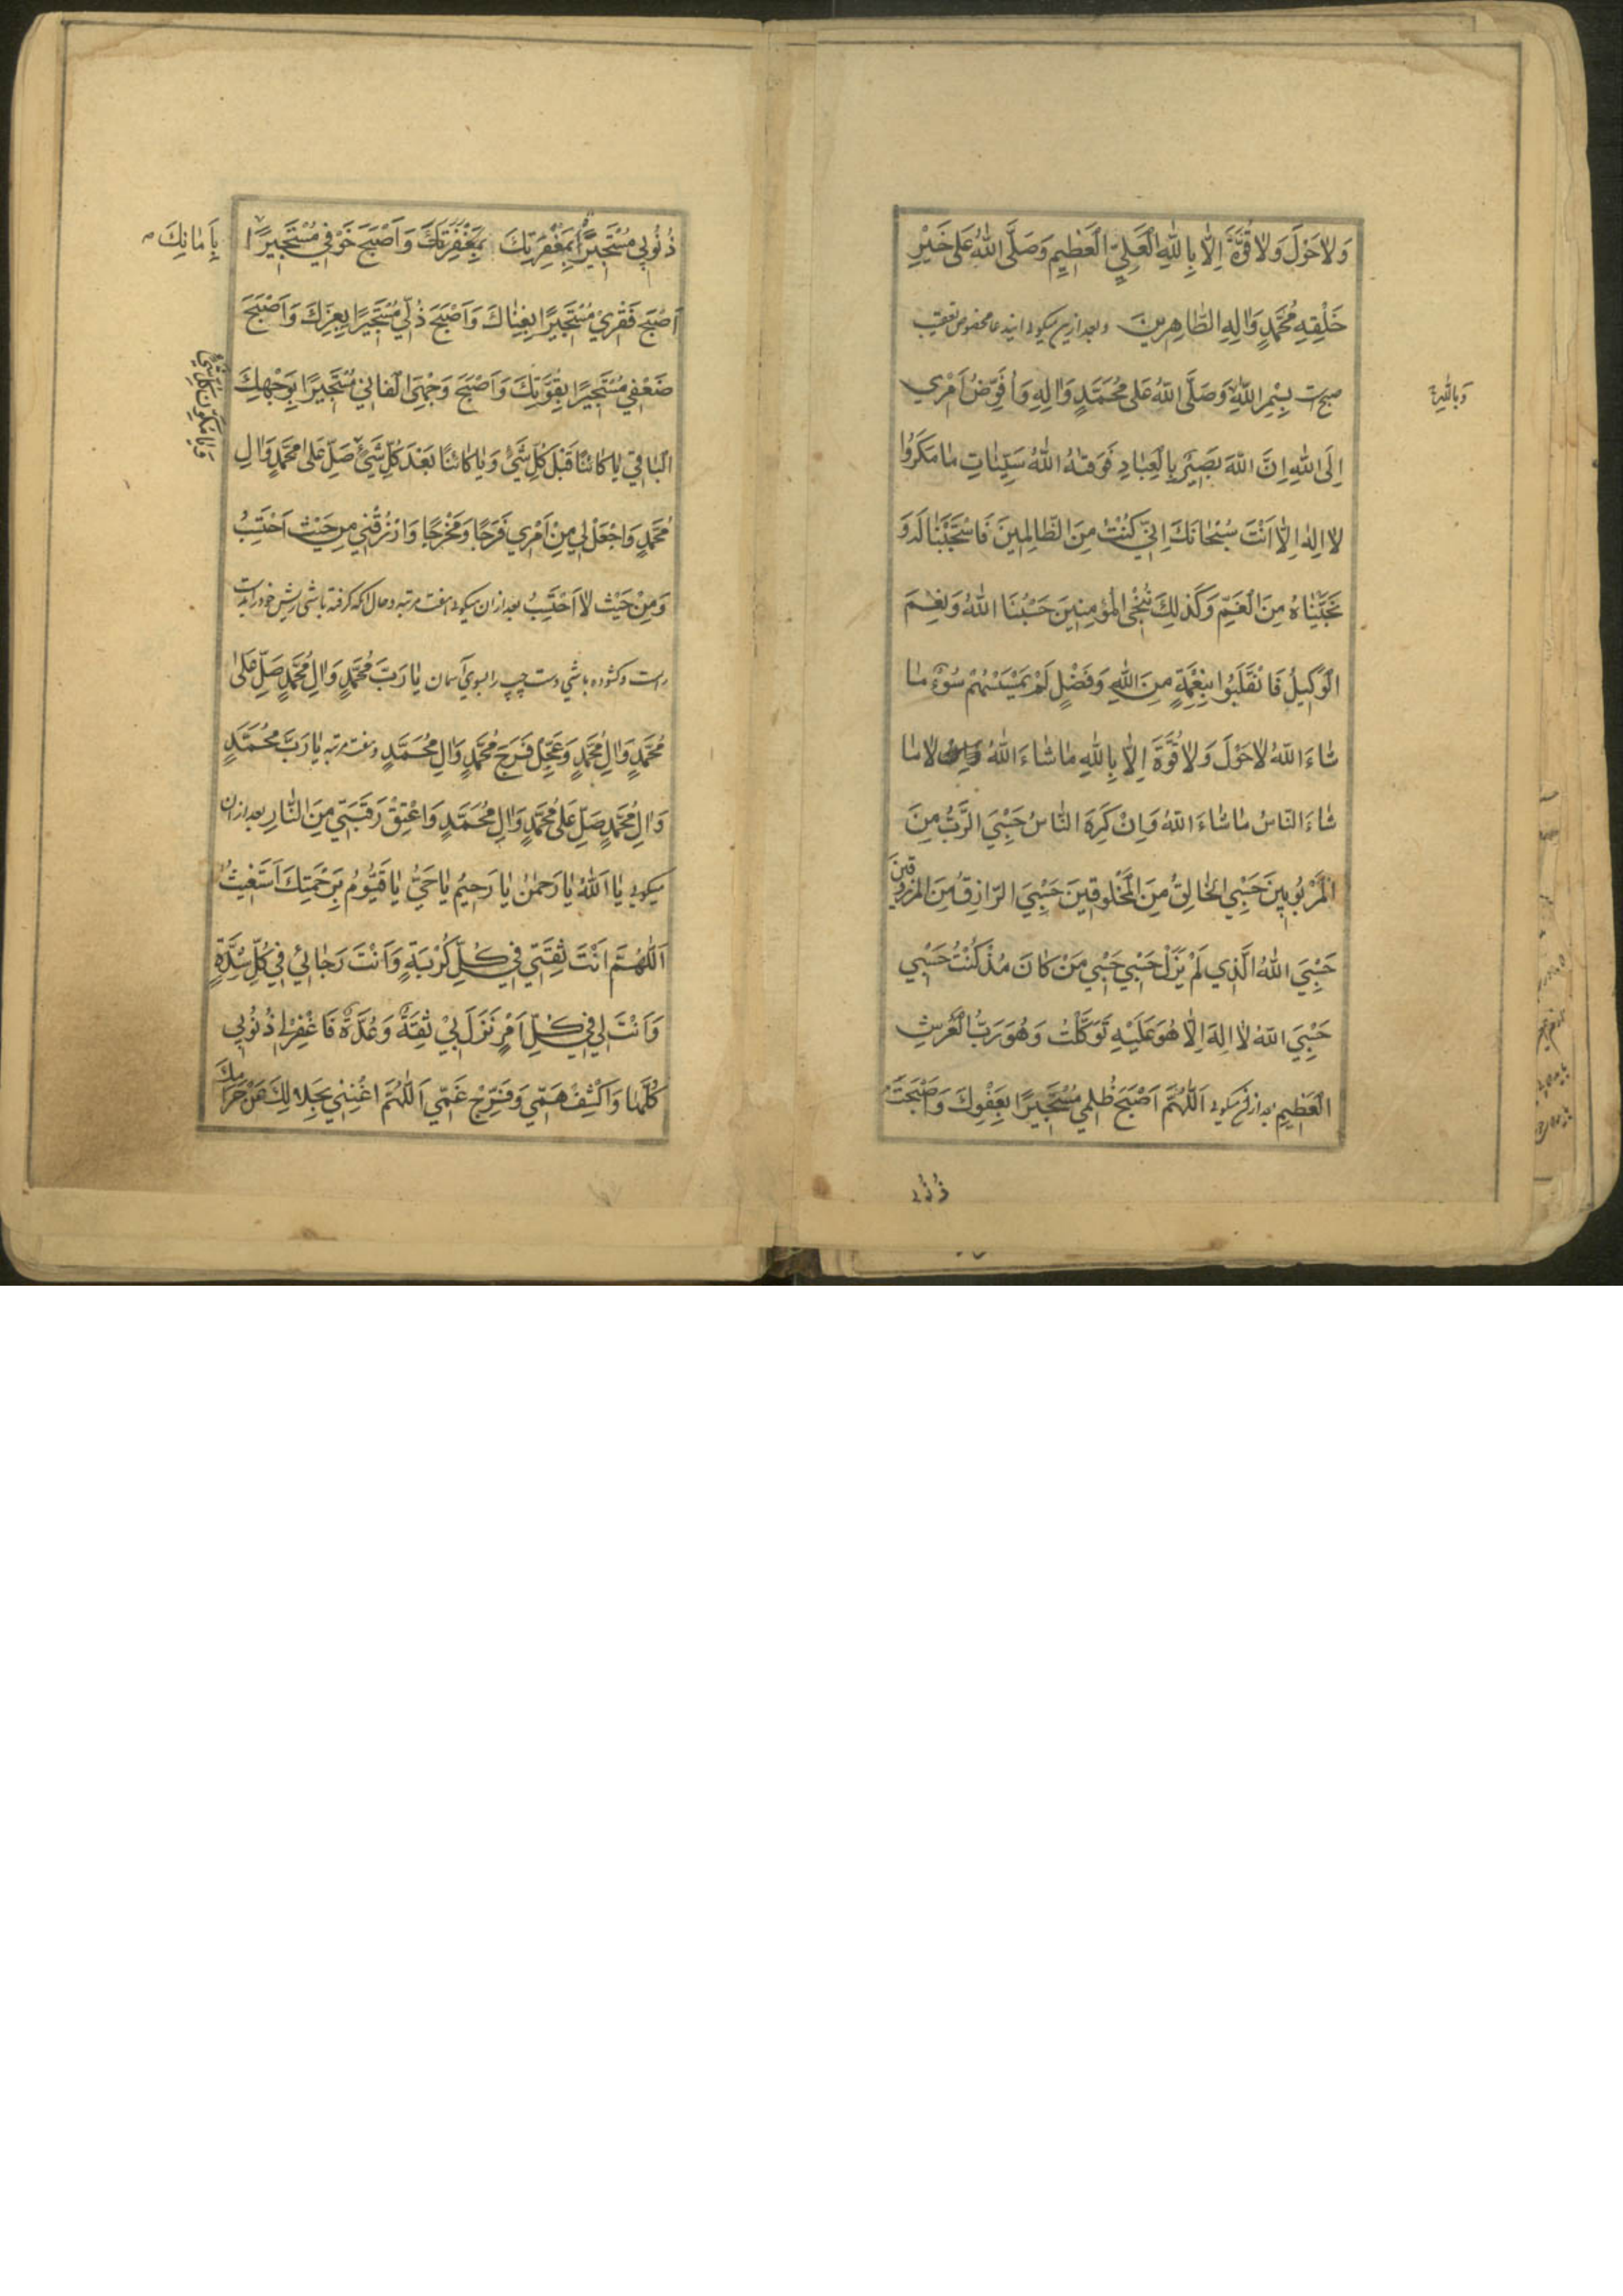 وَلاٰ حَوْلَ وَلاٰ قُوَّةَ اِلّاٰ بِاللّٰهِ الْعَلِيِّ الْعَظِيمِ وَصَلَّى اللّٰهُ عَلىٰ خَيْرِ
خَلْقِهِ مُحَمَّدٍ وَاٰلِهِ الطّٰاهِرِينَ و بعد ازین میگوید ایندعا مخصوص تعقیب
صبح است بِسْمِ اللّٰهِ وَصَلَّى اللّٰهُ عَلىٰ مُحَمَّدٍ وَاٰلِهِ وَاُفَوِّضُ اَمْرِي
وَبِاللّٰهِ
اِلَى اللّٰهِ اِنَّ اللّٰهَ بَصِيرٌ بِالْعِبٰادِ فَوَقٰهُ اللّٰهُ سَيِّئٰاتِ مٰا مَكَرُوا
لاٰ اِلٰهَ اِلّاٰ اَنْتَ سُبْحٰانَكَ اِنّي كُنْتُ مِنَ الظّٰالِمِينَ فَاسْتَجَبْنٰا لَهُ وَ
نَجَّيْنٰاهُ مِنَ الْغَمِّ وَكَذٰلِكَ نُنْجِي الْمُؤْمِنِينَ حَسْبُنَا اللّٰهُ وَنِعْمَ
الْوَكِيلُ فَانْقَلَبُوا بِنِعْمَةٍ مِنَ اللّٰهِ وَفَضْلٍ لَمْ يَمْسَسْهُمْ سُوءٌ مٰا
شٰاءَ اللّٰهُ لاٰ حَوْلَ وَلاٰ قُوَّةَ اِلّاٰ بِاللّٰهِ مٰا شٰاءَ اللّٰهُ لاٰ مٰا
شٰاءَ النّاسُ مٰا شٰاءَ اللّٰهُ وَاِنْ كَرِهَ النّٰاسُ حَسْبِيَ الرَّبُّ مِنَ
الْمَرْبُوبِينَ حَسْبِيَ الْخٰالِقُ مِنَ الْمَخْلُوقِينَ حَسْبِيَ الرّٰازِقُ مِنَ الْمَرْزُوقِينَ
حَسْبِيَ اللّٰهُ الَّذِي لَمْ يَزَلْ حَسْبِي حَسْبِي مَنْ كٰانَ مُذْ كُنْتُ حَسْبِي
حَسْبِيَ اللّٰهُ لاٰ اِلٰهَ اِلّاٰ هُوَ عَلَيْهِ تَوَكَّلْتُ وَهُوَ رَبُّ الْعَرْشِ
الْعَظِيمِ بعد ازان میگوید اَللّٰهُمَّ اَصْبَحَ ظُلْمِي مُسْتَجِيرًا بِعَفْوِكَ وَاَصْبَحَتْ
ذُنُوبِي
ذُنُوبِي مُسْتَجِيرًا بِمَغْفِرَتِكَ بِمَغْفِرَتِكَ وَاَصْبَحَ خَوْفِي مُسْتَجِيرًا
بِاَمٰانِكَ
اَصْبَحَ فَقْرِي مُسْتَجِيرًا بِغِنٰاكَ وَاَصْبَحَ ذُلّي مُسْتَجِيرًا بِعِزِّكَ وَاَصْبَحَ
ضَعْفِي مُسْتَجِيرًا بِقُوَّتِكَ وَاَصْبَحَ وَجْهِيَ الْفٰانِي مُسْتَجِيرًا بِوَجْهِكَ
الْبٰاقِي يٰا كٰائِنًا قَبْلَ كُلِّ شَيْءٍ وَيٰا كٰائِنًا بَعْدَ كُلِّ شَيْءٍ صَلِّ عَلىٰ مُحَمَّدٍ وَاٰلِ
وَيٰا مُكَوِّنَ كُلِّ شَيْءٍ
مُحَمَّدٍ وَاجْعَلْ لِي مِنْ اَمْرِي فَرَجًا وَمَخْرَجًا وَارْزُقْنِي مِنْ حَيْثُ اَحْتَسِبُ
وَمِنْ حَيْثُ لاٰ اَحْتَسِبُ بعد ازان میگوید هفت مرتبه و حال آنکه گرفته باشی ریش خود را بدست
راست و گشوده باشی دست چپ را بسوی آسمان يٰا رَبَّ مُحَمَّدٍ وَاٰلِ مُحَمَّدٍ صَلِّ عَلىٰ
مُحَمَّدٍ وَاٰلِ مُحَمَّدٍ وَعَجِّلْ فَرَجَ مُحَمَّدٍ وَاٰلِ مُحَمَّدٍ و هفت مرتبه يٰا رَبَّ مُحَمَّدٍ
وَاٰلِ مُحَمَّدٍ صَلِّ عَلىٰ مُحَمَّدٍ وَاٰلِ مُحَمَّدٍ وَاعْتِقْ رَقَبَتِي مِنَ النّٰارِ بعد ازان
میگوید يٰا اَللّٰهُ يٰا رَحْمٰنُ يٰا رَحِيمُ يٰا حَيُّ يٰا قَيُّومُ بِرَحْمَتِكَ اَسْتَغِيثُ
اَللّٰهُمَّ اَنْتَ ثِقَتِي فِي كُلِّ كُرْبَةٍ وَاَنْتَ رَجٰائِي فِي كُلِّ شِدَّةٍ
وَاَنْتَ لِي فِي كُلِّ اَمْرٍ نَزَلَ بِي ثِقَةٌ وَعُدَّةٌ فَاغْفِرْ لِي ذُنُوبِي
كُلَّهٰا وَاكْشِفْ هَمّي وَفَرِّجْ غَمّي اَللّٰهُمَّ اغْنِنِي بِحَلاٰلِكَ عَنْ حَرٰامِكَ